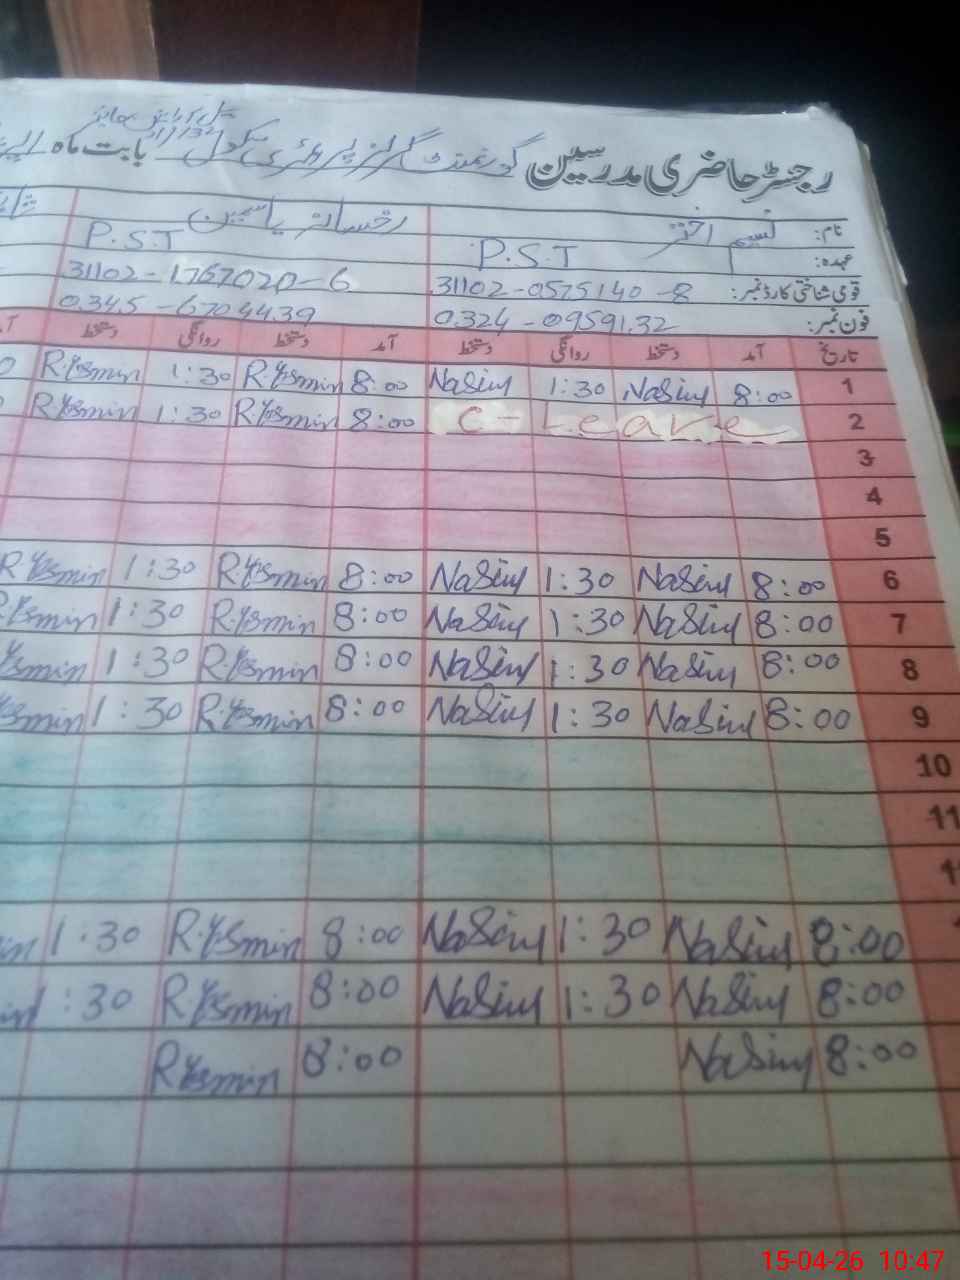 رجسٹر حاضری مدرسین گورنمنٹ گرلز پرائمری سکول بابت ماہ
نام: نسیم اختر رخسانہ یاسمین
عہدہ: P.S.T P.S.T
قومی شناختی کارڈ نمبر: 31102-0575140-8 31102-1767020-6
فون نمبر: 0324-0959132 0345-6704439
تاریخ آمد دستخط روانگی دستخط آمد دستخط روانگی دستخط
1 8:00 Nasim 1:30 Nasim 8:00 R.Yasmin 1:30 R.Yasmin
2 C-Leave 8:00 R.Yasmin 1:30 R.Yasmin
3
4
5
6 8:00 Nasim 1:30 Nasim 8:00 R.Yasmin 1:30 R.Yasmin
7 8:00 Nasim 1:30 Nasim 8:00 R.Yasmin 1:30 R.Yasmin
8 8:00 Nasim 1:30 Nasim 8:00 R.Yasmin 1:30 Yasmin
9 8:00 Nasim 1:30 Nasim 8:00 R.Yasmin 1:30 Yasmin
10
11
8:00 Nasim 1:30 Nasim 8:00 R.Yasmin 1:30
8:00 Nasim 1:30 Nasim 8:00 R.Yasmin :30
8:00 Nasim 8:00 RYasmin
15-04-26 10:47